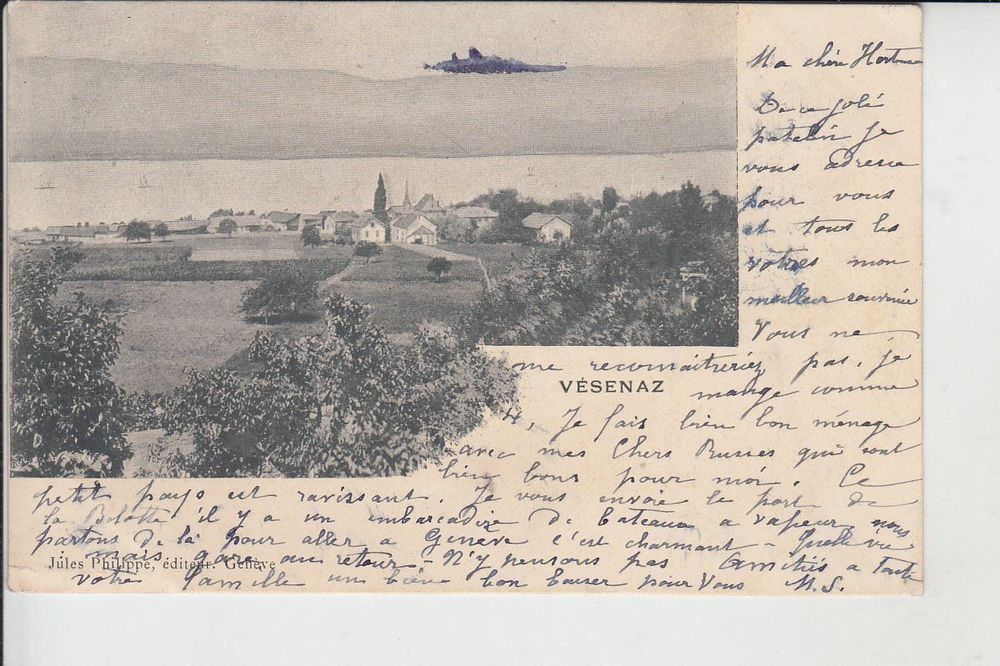 Ma chère Hortense
De ce joli
patelin je
vous adresse
pour vous
et tous les
votres mon
meilleur souvenir
Vous ne
me reconnaitreriez pas, je
VÉSENAZ
mange comme
4, Je fais bien bon ménage
avec mes Chers Russes qui sont
bien bons pour moi. Ce
petit pays est ravissant. Je vous envoie le port de
la Belotte il y a un embarcadère de bateaux a vapeur, nous
partons de là pour aller a Genève c'est charmant - Quelle vie
mais gare au retour - N'y pensons pas Amitiés a toute
Jules Philippe, éditeur, Genève
votre famille un bien bon baiser pour Vous M.S.